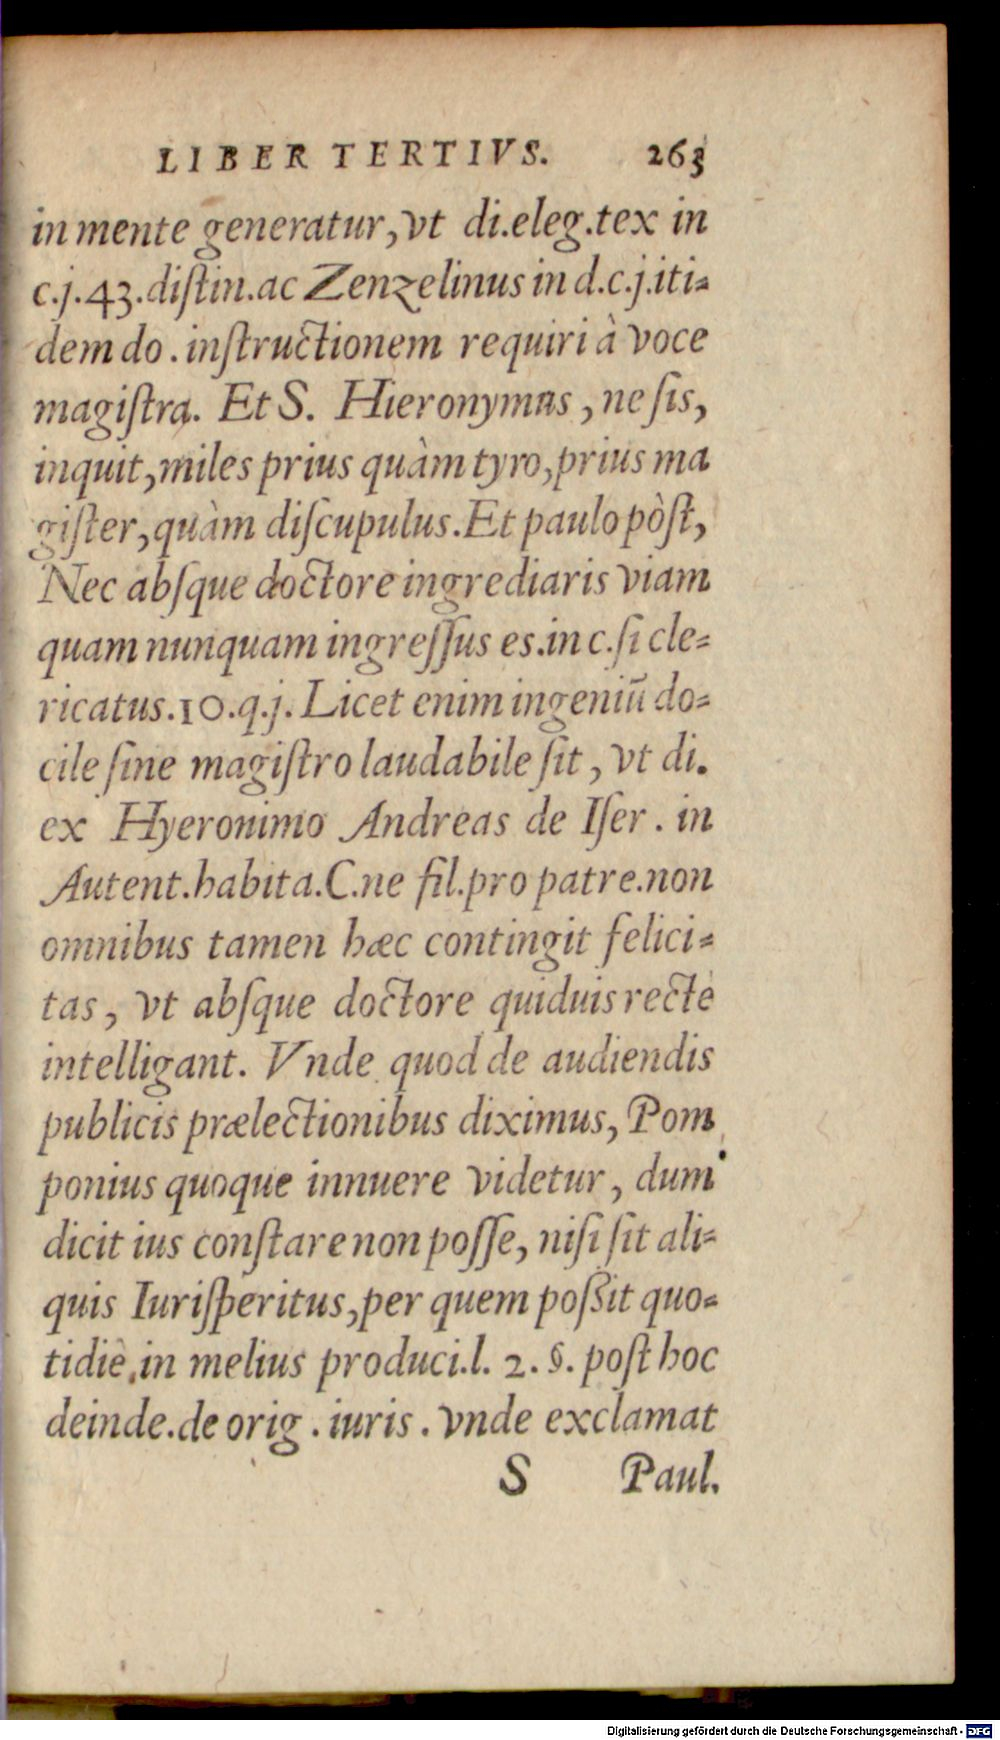 LIBER TERTIVS. 263
in mente generatur, vt di.eleg.tex in
c.j.43.distin.ac Zenzelinus in d.c.j.iti-
dem do. instructionem requiri à voce
magistra. Et S. Hieronymus, ne sis,
inquit, miles prius quàm tyro, prius ma
gister, quàm discupulus. Et paulo pòst,
Nec absque doctore ingrediaris viam
quam nunquam ingressus es.in c.si cle-
ricatus.10.q.j. Licet enim ingeniū do-
cile sine magistro laudabile sit, vt di.
ex Hyeronimo Andreas de Iser. in
Autent.habita.C.ne fil.pro patre.non
omnibus tamen hæc contingit felici-
tas, vt absque doctore quiduis rectè
intelligant. Vnde quod de audiendis
publicis prælectionibus diximus, Pom
ponius quoque innuere videtur, dum
dicit ius constare non posse, nisi sit ali-
quis Iurisperitus, per quem poßit quo-
tidiè in melius produci.l. 2. §. post hoc
deinde.de orig. iuris. vnde exclamat
S Paul.
Digitalisierung gefördert durch die Deutsche Forschungsgemeinschaft - DFG